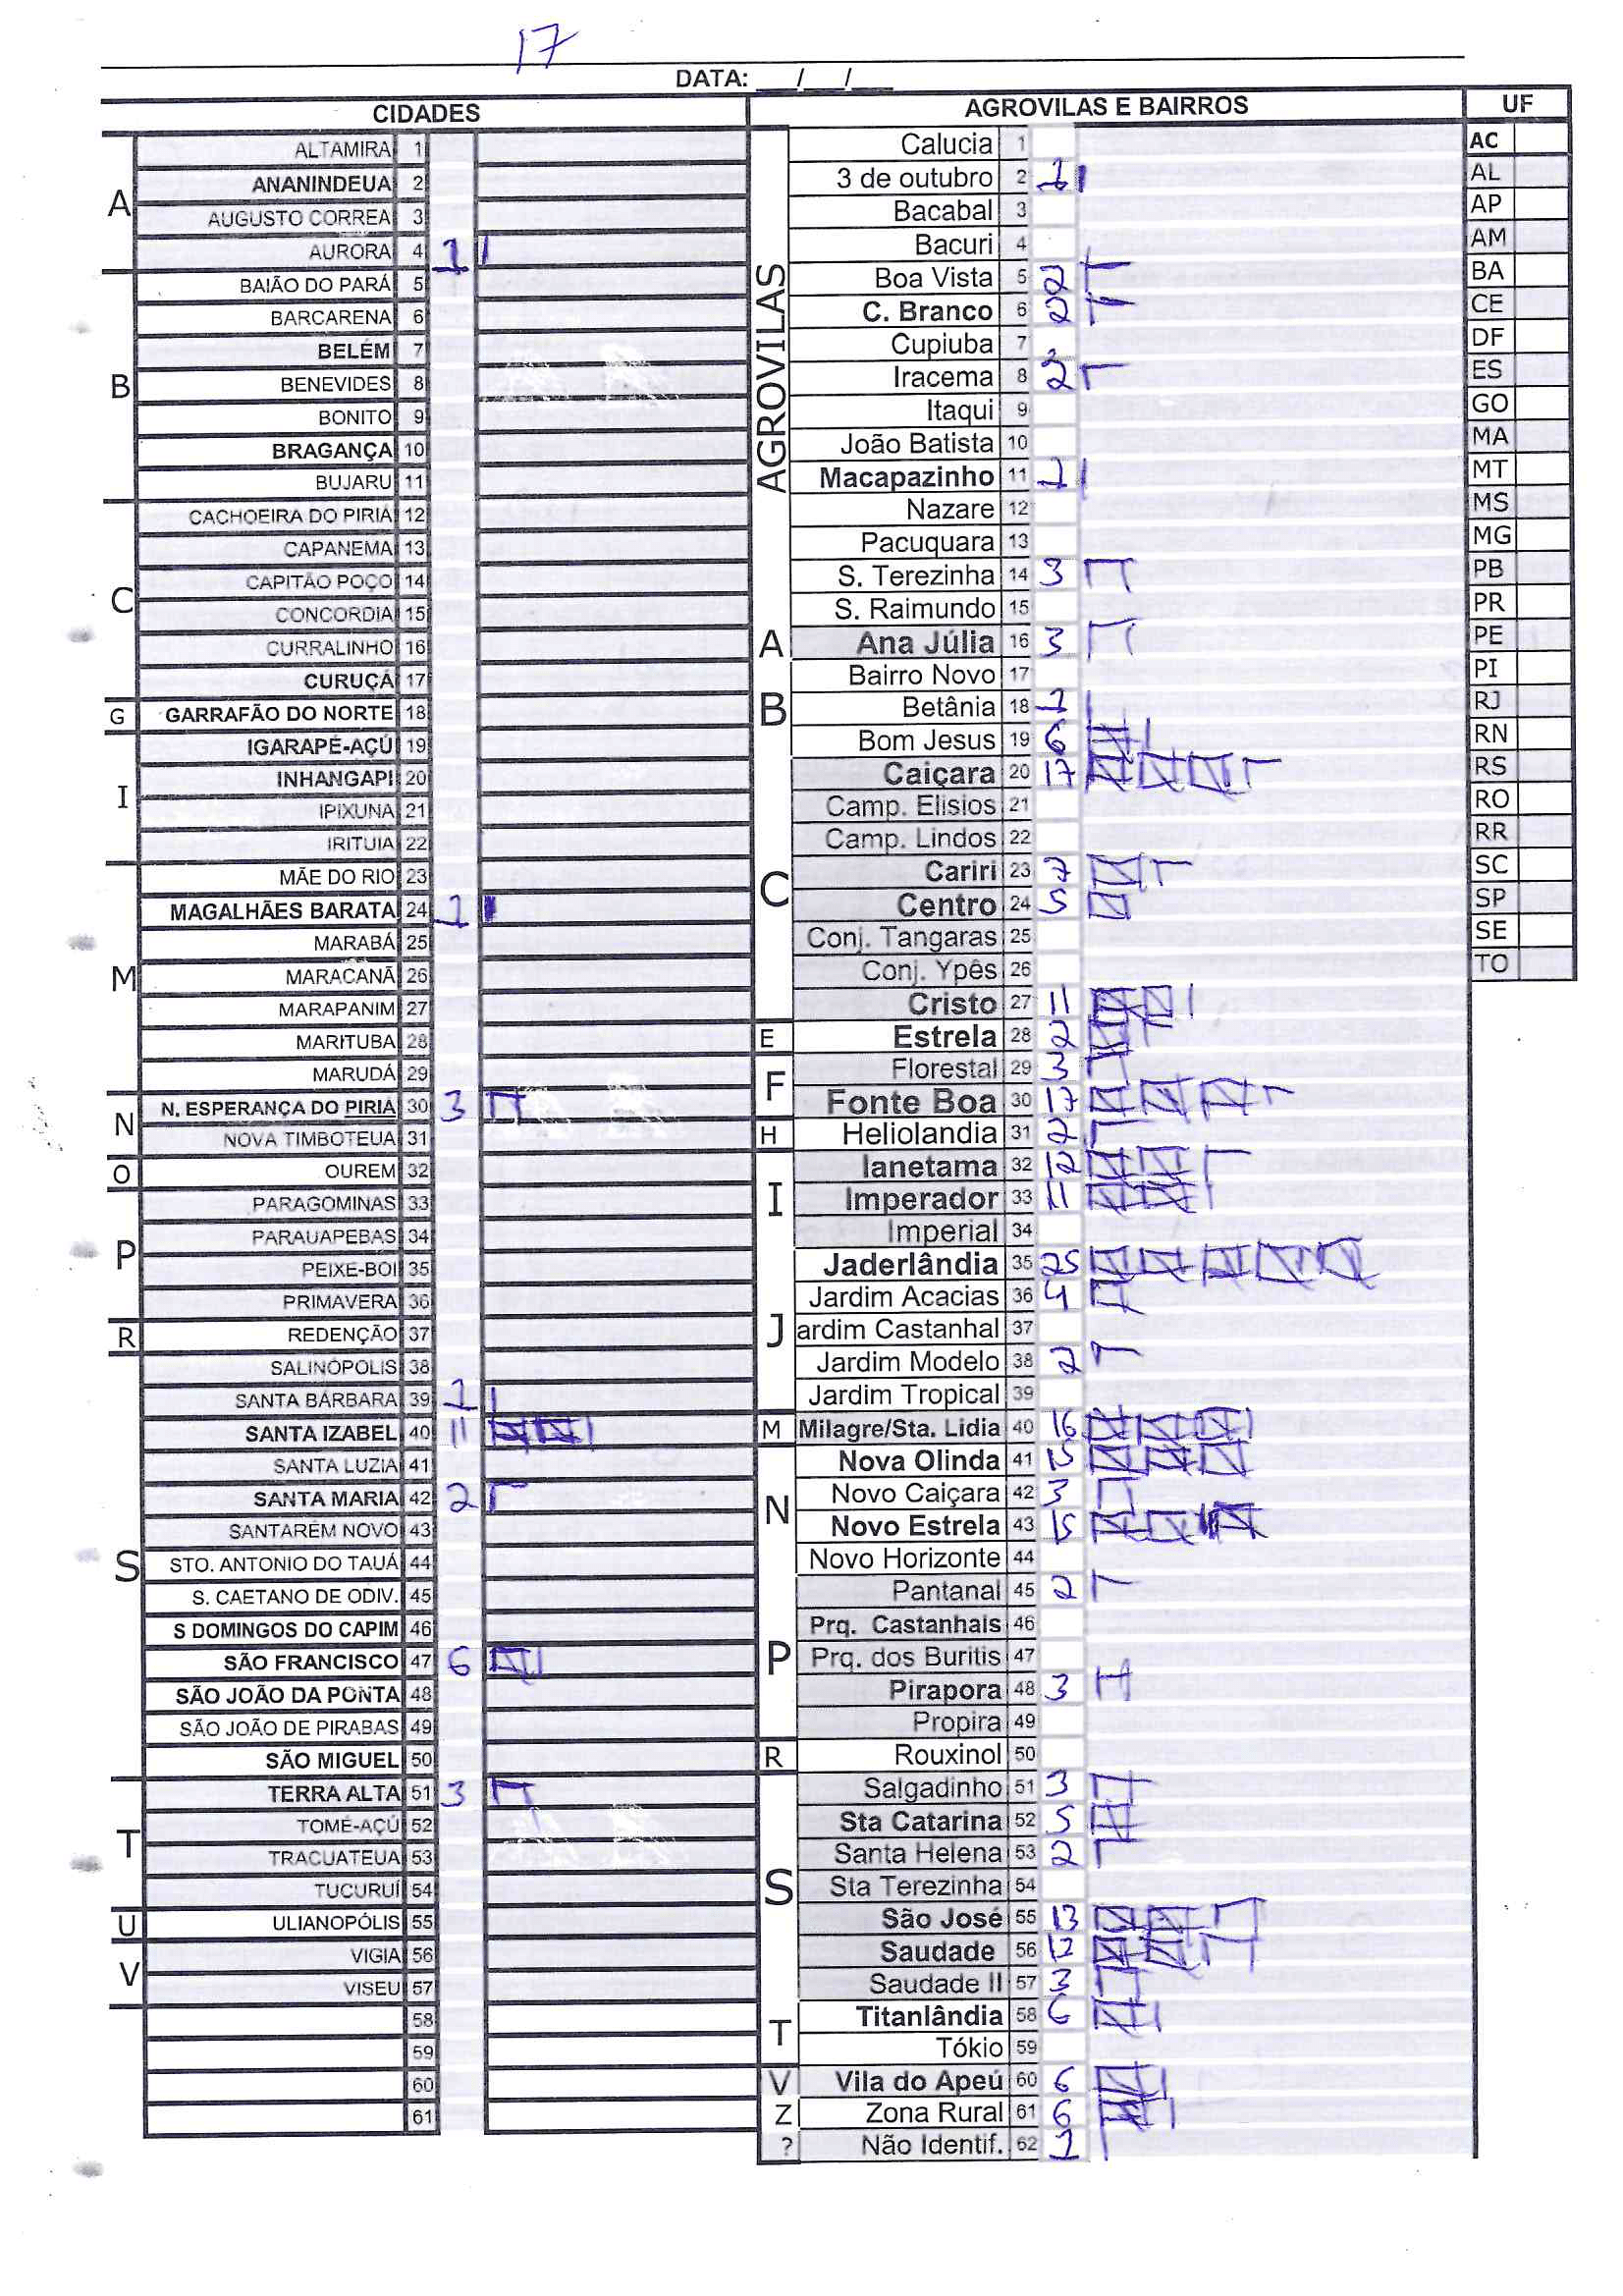 17
DATA: __/__/__
CIDADES
A
ALTAMIRA 1
ANANINDEUA 2
AUGUSTO CORREA 3
AURORA 4 1
B
BAIÃO DO PARÁ 5
BARCARENA 6
BELÉM 7
BENEVIDES 8
BONITO 9
BRAGANÇA 10
BUJARU 11
C
CACHOEIRA DO PIRIÁ 12
CAPANEMA 13
CAPITÃO POÇO 14
CONCORDIA 15
CURRALINHO 16
CURUÇÁ 17
G
GARRAFÃO DO NORTE 18
I
IGARAPÉ-AÇÚ 19
INHANGAPI 20
IPIXUNA 21
IRITUIA 22
M
MÃE DO RIO 23
MAGALHÃES BARATA 24 1
MARABÁ 25
MARACANÃ 26
MARAPANIM 27
MARITUBA 28
MARUDÁ 29
N
N. ESPERANÇA DO PIRIA 30 3
NOVA TIMBOTEUA 31
O
OUREM 32
P
PARAGOMINAS 33
PARAUAPEBAS 34
PEIXE-BOI 35
PRIMAVERA 36
R
REDENÇÃO 37
S
SALINÓPOLIS 38
SANTA BÁRBARA 39 1
SANTA IZABEL 40 11
SANTA LUZIA 41
SANTA MARIA 42 2
SANTARÉM NOVO 43
STO. ANTONIO DO TAUÁ 44
S. CAETANO DE ODIV. 45
S DOMINGOS DO CAPIM 46
SÃO FRANCISCO 47 6
SÃO JOÃO DA PONTA 48
SÃO JOÃO DE PIRABAS 49
SÃO MIGUEL 50
T
TERRA ALTA 51 3
TOMÉ-AÇÚ 52
TRACUATEUA 53
TUCURUÍ 54
U
ULIANOPÓLIS 55
V
VIGIA 56
VISEU 57
58
59
60
61
AGROVILAS E BAIRROS
AGROVILAS
Calucia 1
3 de outubro 2 1
Bacabal 3
Bacuri 4
Boa Vista 5 2
C. Branco 6 2
Cupiuba 7
Iracema 8 2
Itaqui 9
João Batista 10
Macapazinho 11 1
Nazare 12
Pacuquara 13
S. Terezinha 14 3
S. Raimundo 15
A
Ana Júlia 16 3
Bairro Novo 17
B
Betânia 18 1
Bom Jesus 19 6
C
Caiçara 20 17
Camp. Elisios 21
Camp. Lindos 22
Cariri 23 7
Centro 24 5
Conj. Tangaras 25
Conj. Ypês 26
Cristo 27 11
E
Estrela 28 2
F
Florestal 29 3
Fonte Boa 30 17
H
Heliolandia 31 2
I
Ianetama 32 12
Imperador 33 11
Imperial 34
J
Jaderlândia 35 25
Jardim Acacias 36 4
ardim Castanhal 37
Jardim Modelo 38 2
Jardim Tropical 39
M
Milagre/Sta. Lidia 40 16
N
Nova Olinda 41 15
Novo Caiçara 42 3
Novo Estrela 43 15
Novo Horizonte 44
P
Pantanal 45 2
Prq. Castanhais 46
Prq. dos Buritis 47
Pirapora 48 3
Propira 49
R
Rouxinol 50
S
Salgadinho 51 3
Sta Catarina 52 5
Santa Helena 53 2
Sta Terezinha 54
São José 55 13
Saudade 56 12
Saudade II 57 3
T
Titanlândia 58 6
Tókio 59
V
Vila do Apeú 60 6
Z
Zona Rural 61 6
?
Não Identif. 62 1
UF
AC
AL
AP
AM
BA
CE
DF
ES
GO
MA
MT
MS
MG
PB
PR
PE
PI
RJ
RN
RS
RO
RR
SC
SP
SE
TO